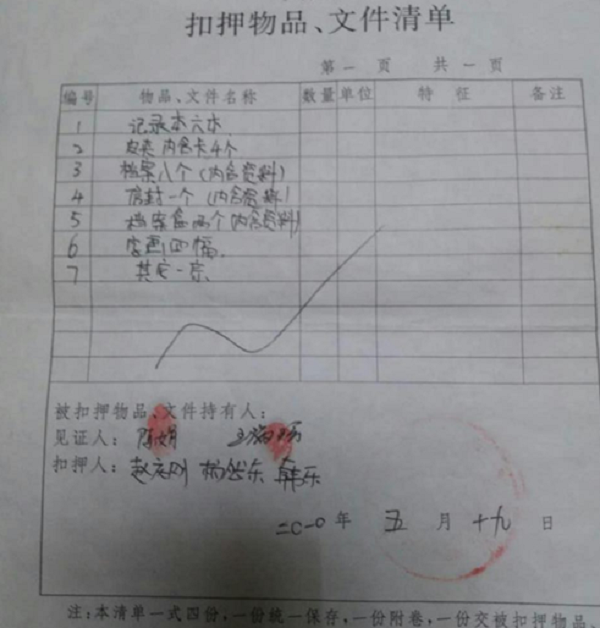 扣押物品、文件清单
第一页 共一页
编号 物品、文件名称 数量 单位 特征 备注
1 记录本六本
2 皮夹 内含卡4个
3 档案八个(内含资料)
4 信封一个(内含资料)
5 档案盒两个(内含资料)
6 字画四幅
7 其它一宗
被扣押物品、文件持有人:
见证人: 陈娟
扣押人:
二〇一〇年 五 月 十九 日
注:本清单一式四份,一份统一保存,一份附卷,一份交被扣押物品、